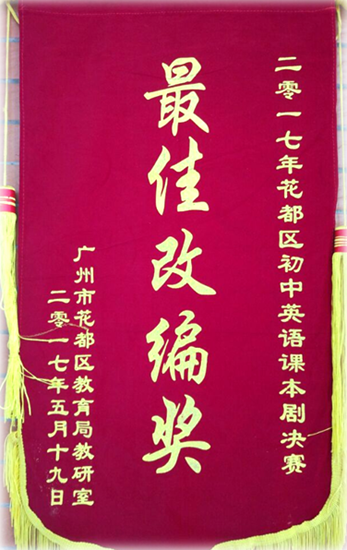 二零一七年花都区初中英语课本剧决赛
最佳改编奖
广州市花都区教育局教研室
二零一七年五月十九日